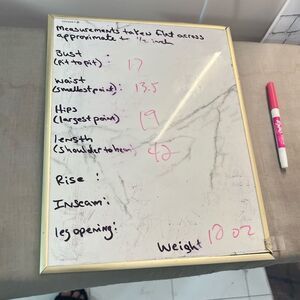 Measurements taken flat across
approximate to 1/2 inch
Bust :
(Pit to pit) : 17
Waist
(smallest point) : 13.5
Hips
(largest point) : 19
Length
(shoulder to hem) : 42
Rise :
Inseam :
leg opening :
Weight 10 oz